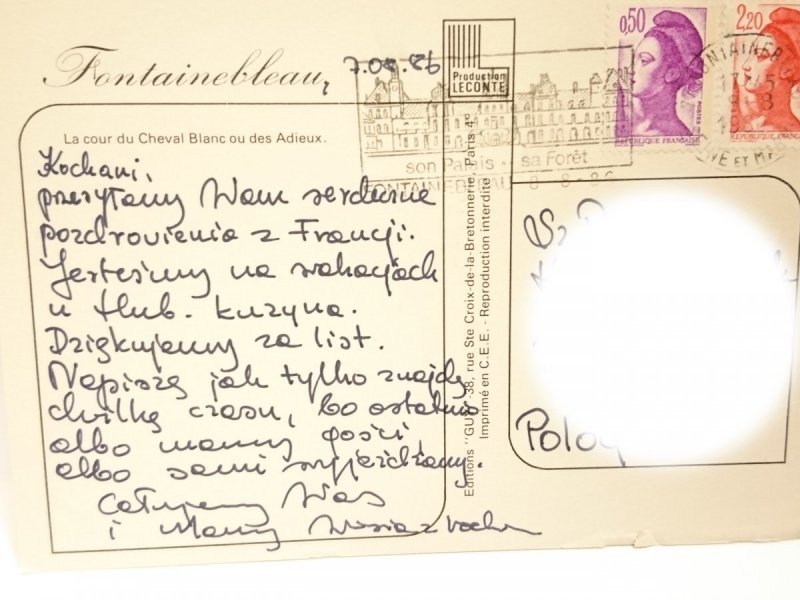 Fontainebleau, 7.08.86
Production
LECONTE
0,50
2,20
POSTES
REPUBLIQUE FRANÇAISE
son Palais - sa Forêt
FONTAINEBLEAU 8-8-86
La cour du Cheval Blanc ou des Adieux.
Kochani,
przesyłamy Wam serdeczne
pozdrowienia z Francji.
Jesteśmy na wakacjach
u Hub. kuzyna.
Dziękujemy za list.
Napiszę jak tylko znajdę
chwilkę czasu, bo ostatnio
albo mamy gości,
albo sami wyjeżdżamy.
Całujemy Was
i Mamę
Editions "GUY" 38, rue Ste Croix-de-la-Bretonnerie, Paris 4e
Imprimé en C.E.E. - Reproduction interdite
Sz.